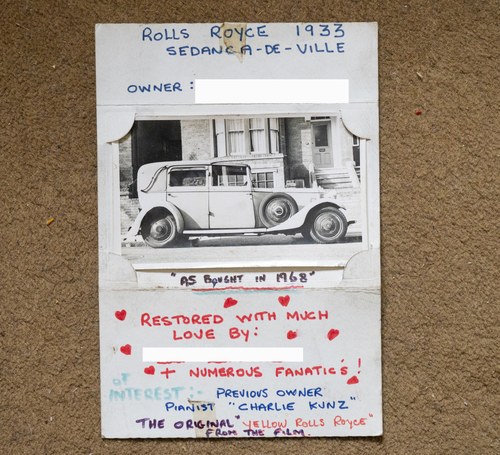 ROLLS ROYCE 1933
SEDANCA-DE-VILLE
OWNER:
"AS BOUGHT IN 1968"
RESTORED WITH MUCH
LOVE BY:
+ NUMEROUS FANATIC'S!
OF
INTEREST:- PREVIOUS OWNER
PIANIST "CHARLIE KUNZ"
THE ORIGINAL "YELLOW ROLLS ROYCE"
FROM THE FILM.